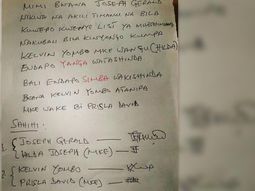 MIMI BWANA JOSEPH GERALD
NIKIWA NA AKILI TIMAMU NA BILA
KUWEPO KWENYE LIST YA
NAKUBALI BILA KINYONGO KUMPA
KELVIN YOMBO MKE WANGU (HILDA)
ENDAPO YANGA WATASHINDA
BALI ENDAPO SIMBA WAKISHINDA
BWANA KELVIN YOMBO ATANIPA
MKE WAKE BI PRISLA DAVID
SAHIHI:
1 { JOSEPH GERALD —
HILDA JOSEPH (MKE) —
2 { KELVIN YOMBO —
PRISLA DAVID (MKE) —